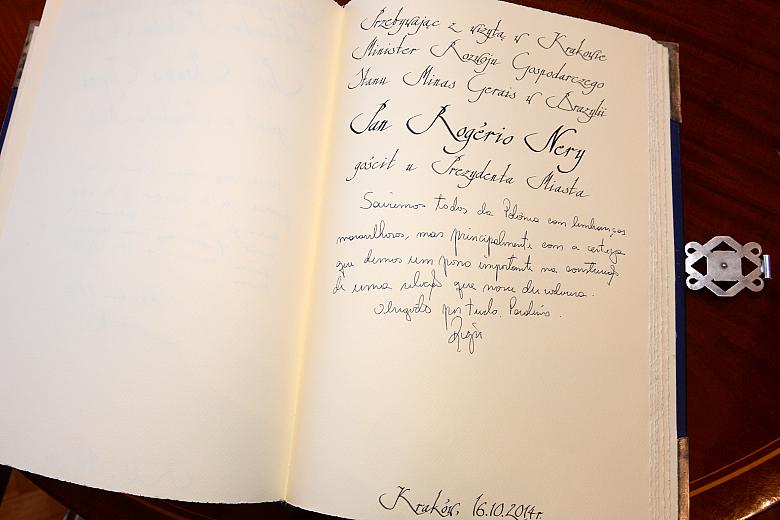 Przebywając z wizytą w Krakowie
Minister Rozwoju Gospodarczego
Stanu Minas Gerais w Brazylii
Pan Rogério Nery
gościł u Prezydenta Miasta
Sairemos todos da Polônia com lembranças
maravilhosas, mas principalmente com a certeza
que demos um passo importante na construção
de uma relação que
Obrigado por tudo.
Kraków, 16.10.2014r.